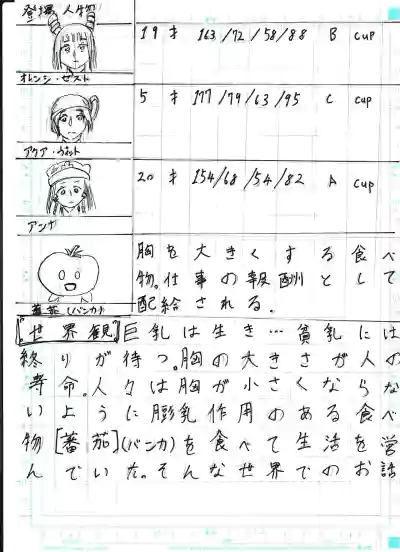 登場人物
19才 163/72/58/88 B cup
オレンジ・ゼスト
5才 177/79/63/95 C cup
アクア・ウォット
20才 154/68/54/82 A cup
アンナ
胸を大きくする食べ
物。仕事の報酬として
配給される。
蕃茄(バンカ)
[世界観]巨乳は生き…貧乳には
終りが待つ。胸の大きさが人の
寿命。人々は胸が小さくならな
いように膨乳作用のある食べ
物[蕃茄](バンカ)を食べて生活を営
んでいた。そんな世界でのお話